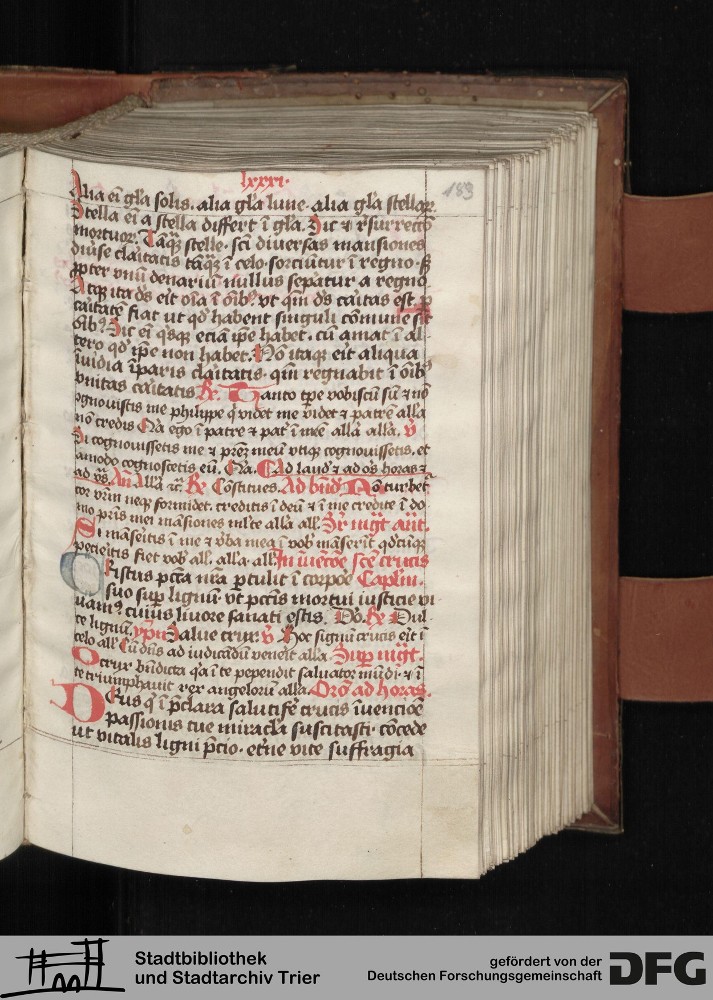 lxxxi.
189
Alia eī gl'a solis. alia gl'a lune. alia gl'a stellaꝝ.
Stella eī a stella differt ī gl'a. Sic ⁊ r̄surrectō
mortuoꝝ. Tāq̄ȝ stelle. sc̄i diversas mansiones
diuīse claītatis tāq̄ȝ ī celo. sorciuntur ī regno. sȝ
ꝓpter vnū denariū nullus sepatur a regno
Atqȝ ita ds̄ eīt oīa ī oīb9. vt qm̄ ds̄ caītas est. ꝑ
caītatē fiat ut qd' habent singuli cōmune sit
oīb9. Sic eī qsqȝ eciā ip̄e habet. cū amat ī al
tero qd' ip̄e non habet. Nō itaqȝ eīt aliqua
īuidia īparis claītatis. qm̄ regnabit ī oīb9
vnitas caītatis R. Tanto tp̄e vobiscū sū ⁊ nō
ꝯgnouistis me philippe q' videt me videt ⁊ patrē all'a
nō credis Q'a ego ī patre ⁊ pat' ī me all'a all'a. V
Si cognouissetis me ⁊ pr̄eȝ meū vtiqȝ cognouissetis. et
amodo cognoscetis eū. Q'a. Ad laud' ⁊ ad os̄ horas ⁊
ad vs̄. An̄ All'a ⁊c. R Cōstitues. Ad bn̄d' Nō turbet'
cor vr̄m neqȝ formidet. creditis ī deū ⁊ ī me credite ī do
mo pr̄is mei māsiones ml'te all'a all'. Sr̄ mg̅t an̄t.
Si māseītis ī me ⁊ v'ba mea ī vob māserīt qd'cūqȝ
pecieītis fiet vob' all'. all'a. all'. In īuētōe sc̄e crucis
Christus pctā nr̄a ꝑtulit ī corpoē Capl'm.
suo sup̄ lignū. vt pctīs mortui iusticie vi
uam9. cuius liuore sanati estis. Do. R Dul
ce lignū. ypn̄ Salue crux. V Hoc signū crucis eīt ī
celo all' Cū dn̄s ad iudicādū veneīt all'a. Sup̄ mg̅t.
O crux bn̄dicta q'a ī te pependit saluator mūdi. ⁊ ī
te triumphauit rex angeloru all'a. Oro ad horas.
Deus q' ī p̄clara salutifē crucis īuencioē
passionis tue miracl'a suscitasti. cōcede
ut vitalis ligni p̄cio. et'ne vite suffragia
Stadtbibliothek
und Stadtarchiv Trier
gefördert von der
Deutschen Forschungsgemeinschaft DFG